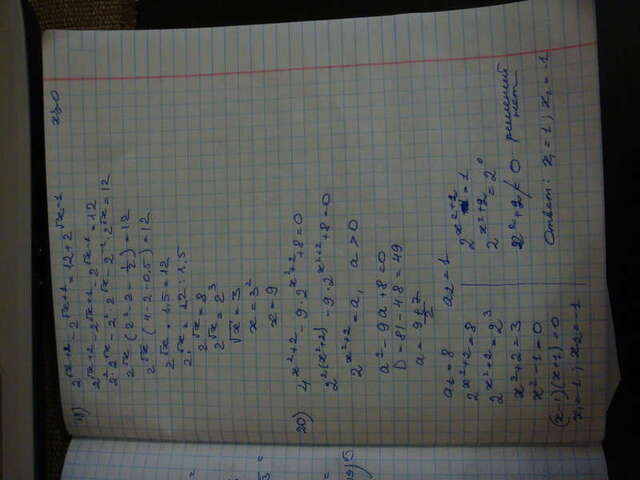 19) 2^(√x+2) - 2^(√x+1) = 12 + 2^(√x-1) x≥0
2^(√x+2) - 2^(√x+1) - 2^(√x-1) = 12
2²·2^√x - 2¹·2^√x - 2⁻¹·2^√x = 12
2^√x (2² - 2 - 1/2) = 12
2^√x (4 - 2 - 0,5) = 12
2^√x · 1.5 = 12
2^√x = 12 : 1,5
2^√x = 8
2^√x = 2³
√x = 3
x = 3²
x = 9
20) 4^(x²+2) - 9·2^(x²+2) + 8 = 0
2^(2(x²+2)) - 9·2^(x²+2) + 8 = 0
2^(x²+2) = a, a > 0
a² - 9a + 8 = 0
D = 81 - 48 = 49
a = (9±7)/2
a₁ = 8 a₂ = 1
2^(x²+2) = 8
2^(x²+2) = 2³
x² + 2 = 3
x² - 1 = 0
(x-1)(x+1) = 0
x₁ = 1; x₂ = -1
2^(x²+2) = 1
2^(x²+2) = 2⁰
x² + 2 ≠ 0 решений
нет
Ответ: x₁ = 1; x₂ = -1